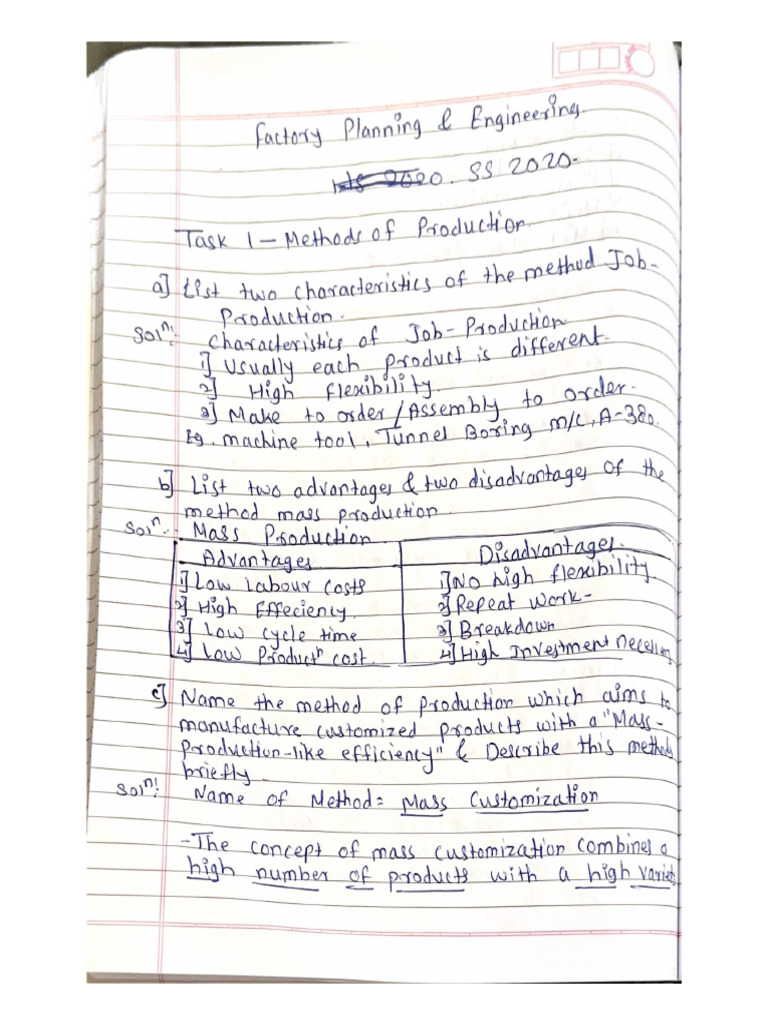 Factory Planning & Engineering.
SS 2020.
Task 1 – Methods of Production.
a] List two characteristics of the method Job-
Production.
Solⁿ: Characteristics of Job-Production
1] Usually each product is different.
2] High flexibility.
3] Make to order / Assembly to order.
Eg. machine tool, Tunnel Boring m/c, A-380.
b] List two advantages & two disadvantages of the
method mass production.
Solⁿ:- Mass Production
Advantages Disadvantages.
1] Low Labour costs 1] No high flexibility
2] High Effeciency. 2] Repeat work-
3] Low cycle time 3] Breakdown
4] Low Productⁿ cost. 4] High Investment necessary
c] Name the method of production which aims to
manufacture customized products with a "Mass-
Production-like efficiency" & Describe this method
briefly.
Solⁿ: Name of Method = Mass Customization
- The concept of mass customization combines a
high number of products with a high variety